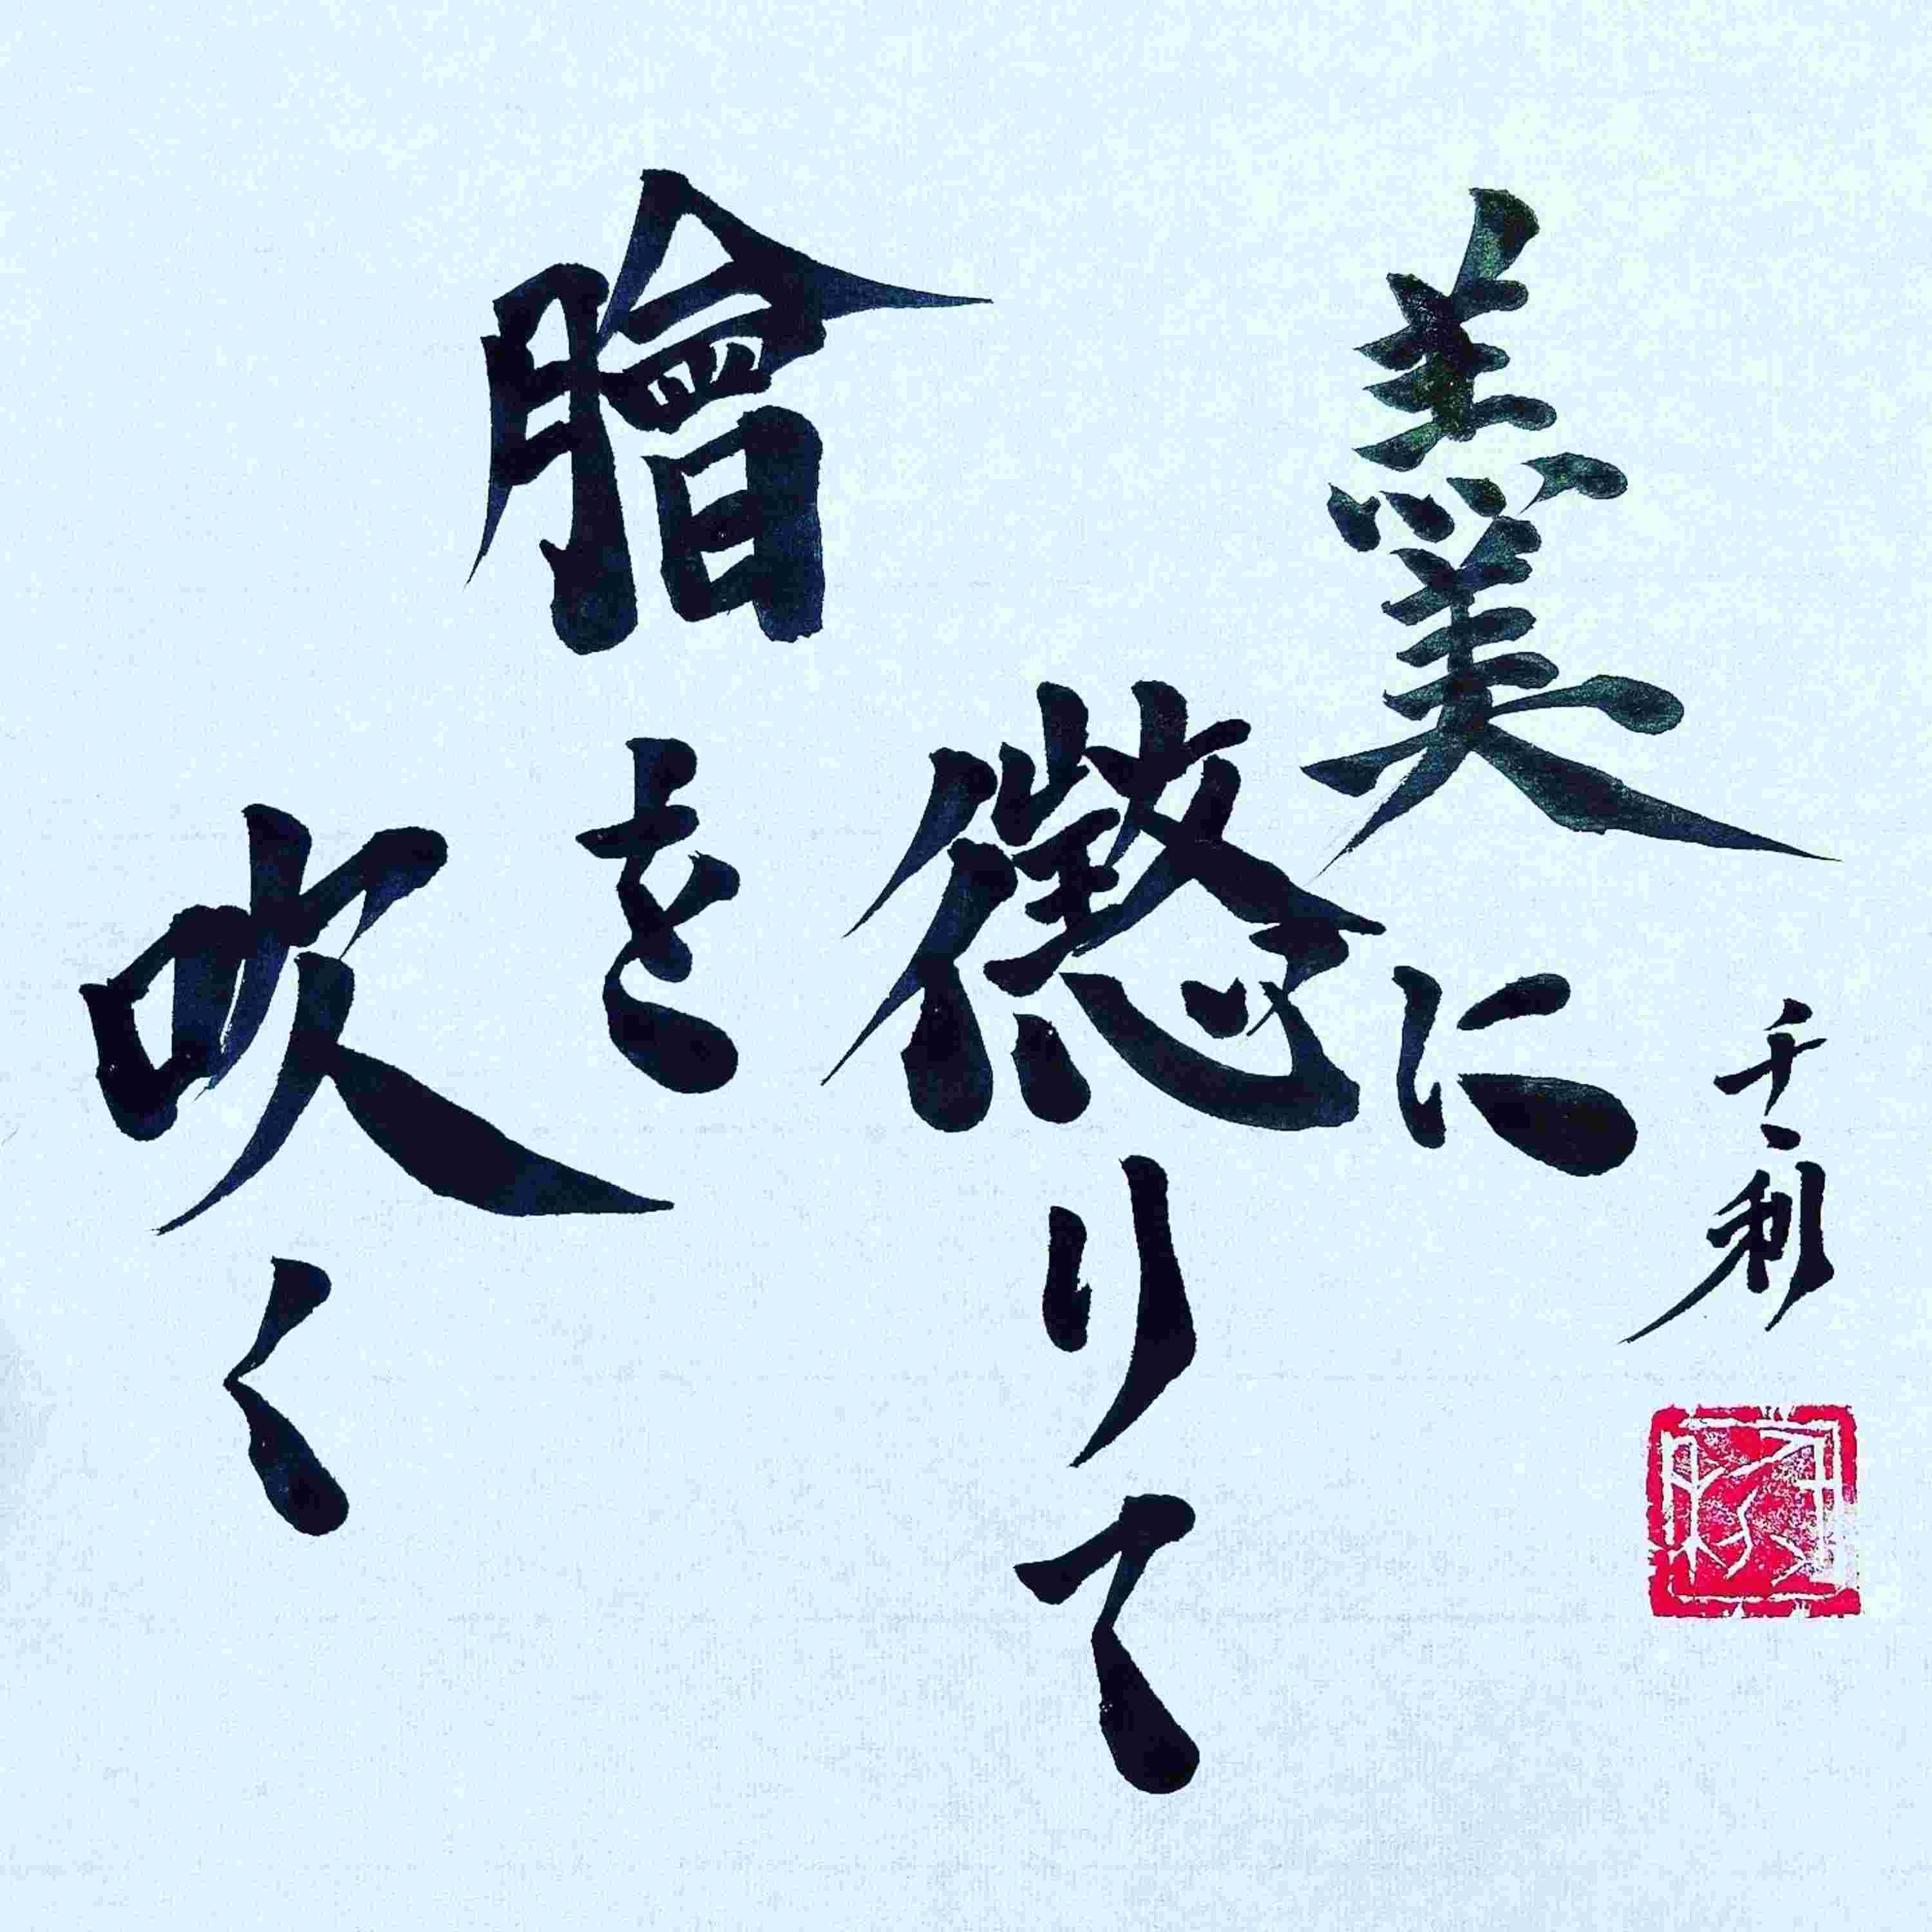 羹に
懲りて
膾を
吹く